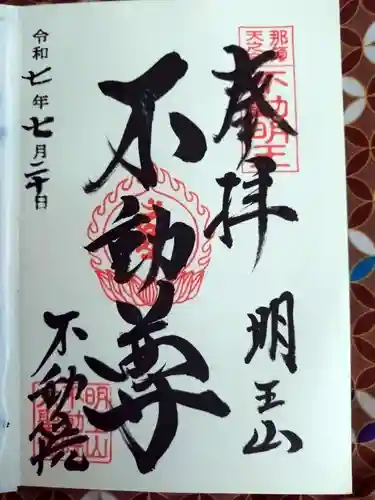 奉拝
明王山
不動尊
令和七年七月二十日
不動院
那須
不動明王
明王山